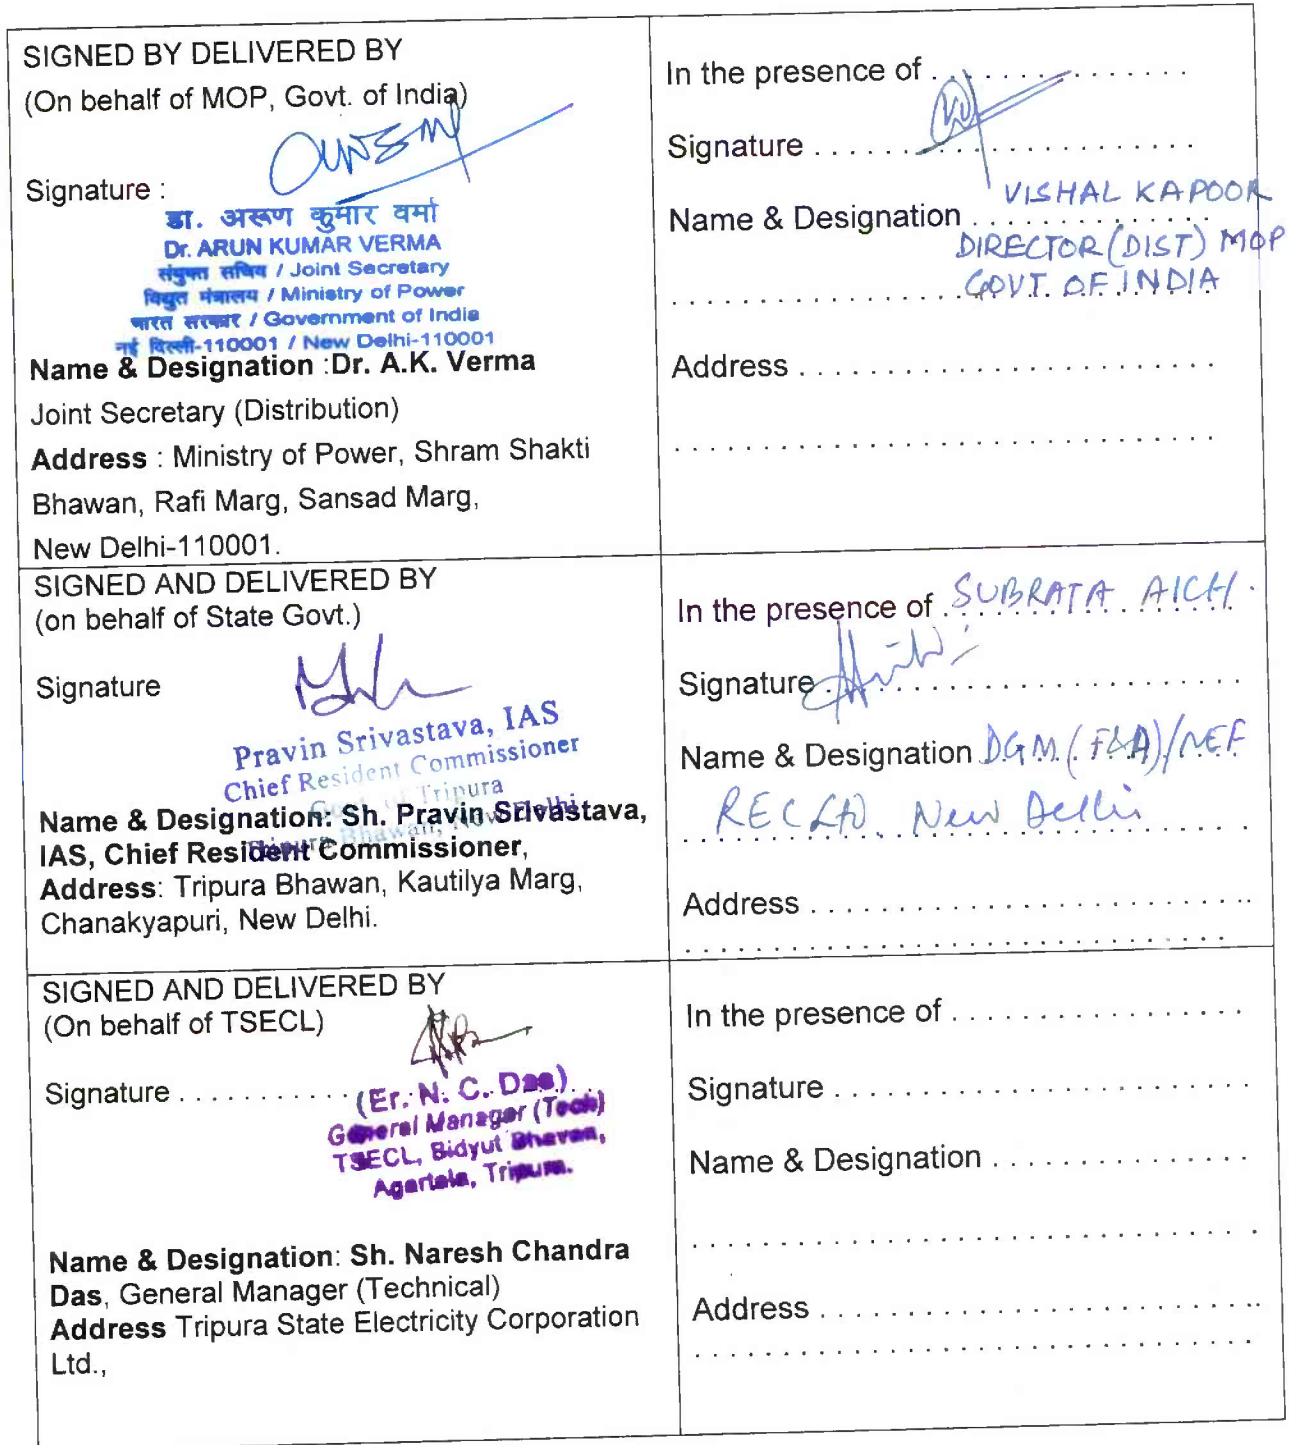 SIGNED BY DELIVERED BY
(On behalf of MOP, Govt. of India)
Signature :
डा. अरूण कुमार वर्मा
Dr. ARUN KUMAR VERMA
संयुक्त सचिव / Joint Secretary
विद्युत मंत्रालय / Ministry of Power
भारत सरकार / Government of India
नई दिल्ली-110001 / New Delhi-110001
Name & Designation :Dr. A.K. Verma
Joint Secretary (Distribution)
Address : Ministry of Power, Shram Shakti
Bhawan, Rafi Marg, Sansad Marg,
New Delhi-110001.
In the presence of . . . . . . . . . . . . . . .
Signature . . . . . . . . . . . . . . . . . . . . . .
Name & Designation VISHAL KAPOOR
DIRECTOR (DIST) MOP
GOVT. OF INDIA
Address . . . . . . . . . . . . . . . . . . . . . . . .
SIGNED AND DELIVERED BY
(on behalf of State Govt.)
Signature
Pravin Srivastava, IAS
Chief Resident Commissioner
Govt. of Tripura
Tripura Bhawan, New Delhi
Name & Designation: Sh. Pravin Srivastava,
IAS, Chief Resident Commissioner,
Address: Tripura Bhawan, Kautilya Marg,
Chanakyapuri, New Delhi.
In the presence of SUBRATA AICH.
Signature . . . . . . . . . . . . . . . . . . . . . .
Name & Designation DGM (F&A)/
New Delhi
Address . . . . . . . . . . . . . . . . . . . . . . . .
SIGNED AND DELIVERED BY
(On behalf of TSECL)
Signature . . . . . . . . . . . .
(Er. N. C. Das)
General Manager (Tech)
TSECL, Bidyut Bhavan,
Agartala, Tripura.
Name & Designation: Sh. Naresh Chandra
Das, General Manager (Technical)
Address Tripura State Electricity Corporation
Ltd.,
In the presence of . . . . . . . . . . . . . . . . .
Signature . . . . . . . . . . . . . . . . . . . . . . . .
Name & Designation . . . . . . . . . . . . . . .
Address . . . . . . . . . . . . . . . . . . . . . . . . . .